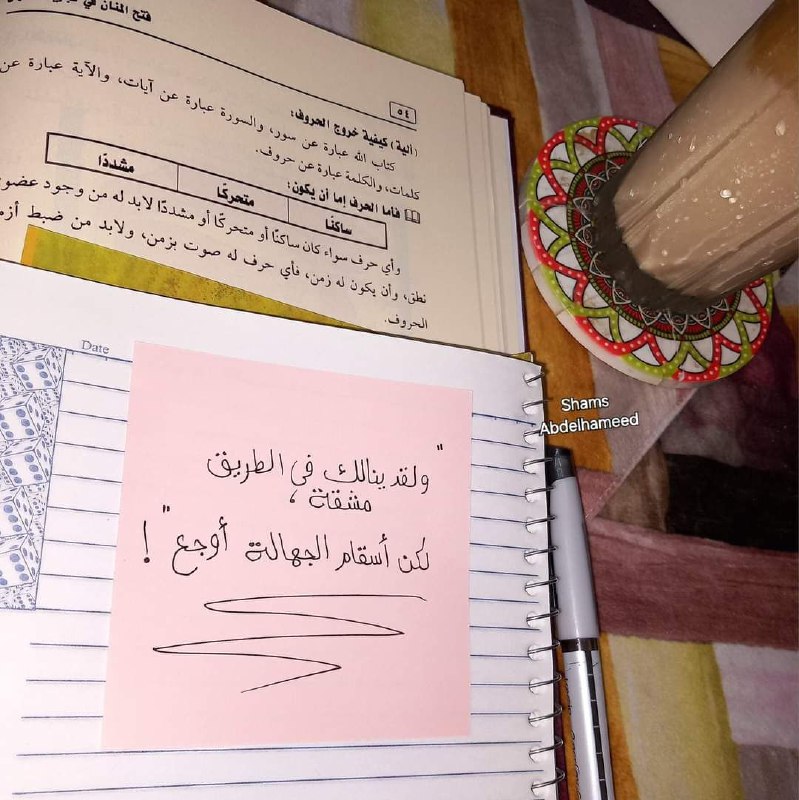 فتح المنان في
٥٤
(آلية) كيفية خروج الحروف:
كتاب الله عبارة عن سور، والسورة عبارة عن آيات، والآية عبارة عن
كلمات، والكلمة عبارة عن حروف.
فأما الحرف إما أن يكون:
ساكنًا متحركًا مشددًا
وأي حرف سواء كان ساكنًا أو متحركًا أو مشددًا لابد له من وجود عضو
نطق، وأن يكون له زمن، فأي حرف له صوت بزمن، ولابد من ضبط أزم
الحروف.
Date
"ولقد ينالك في الطريق
مشقة،
لكن أسقام الجهالة أوجع"!
Shams
Abdelhameed